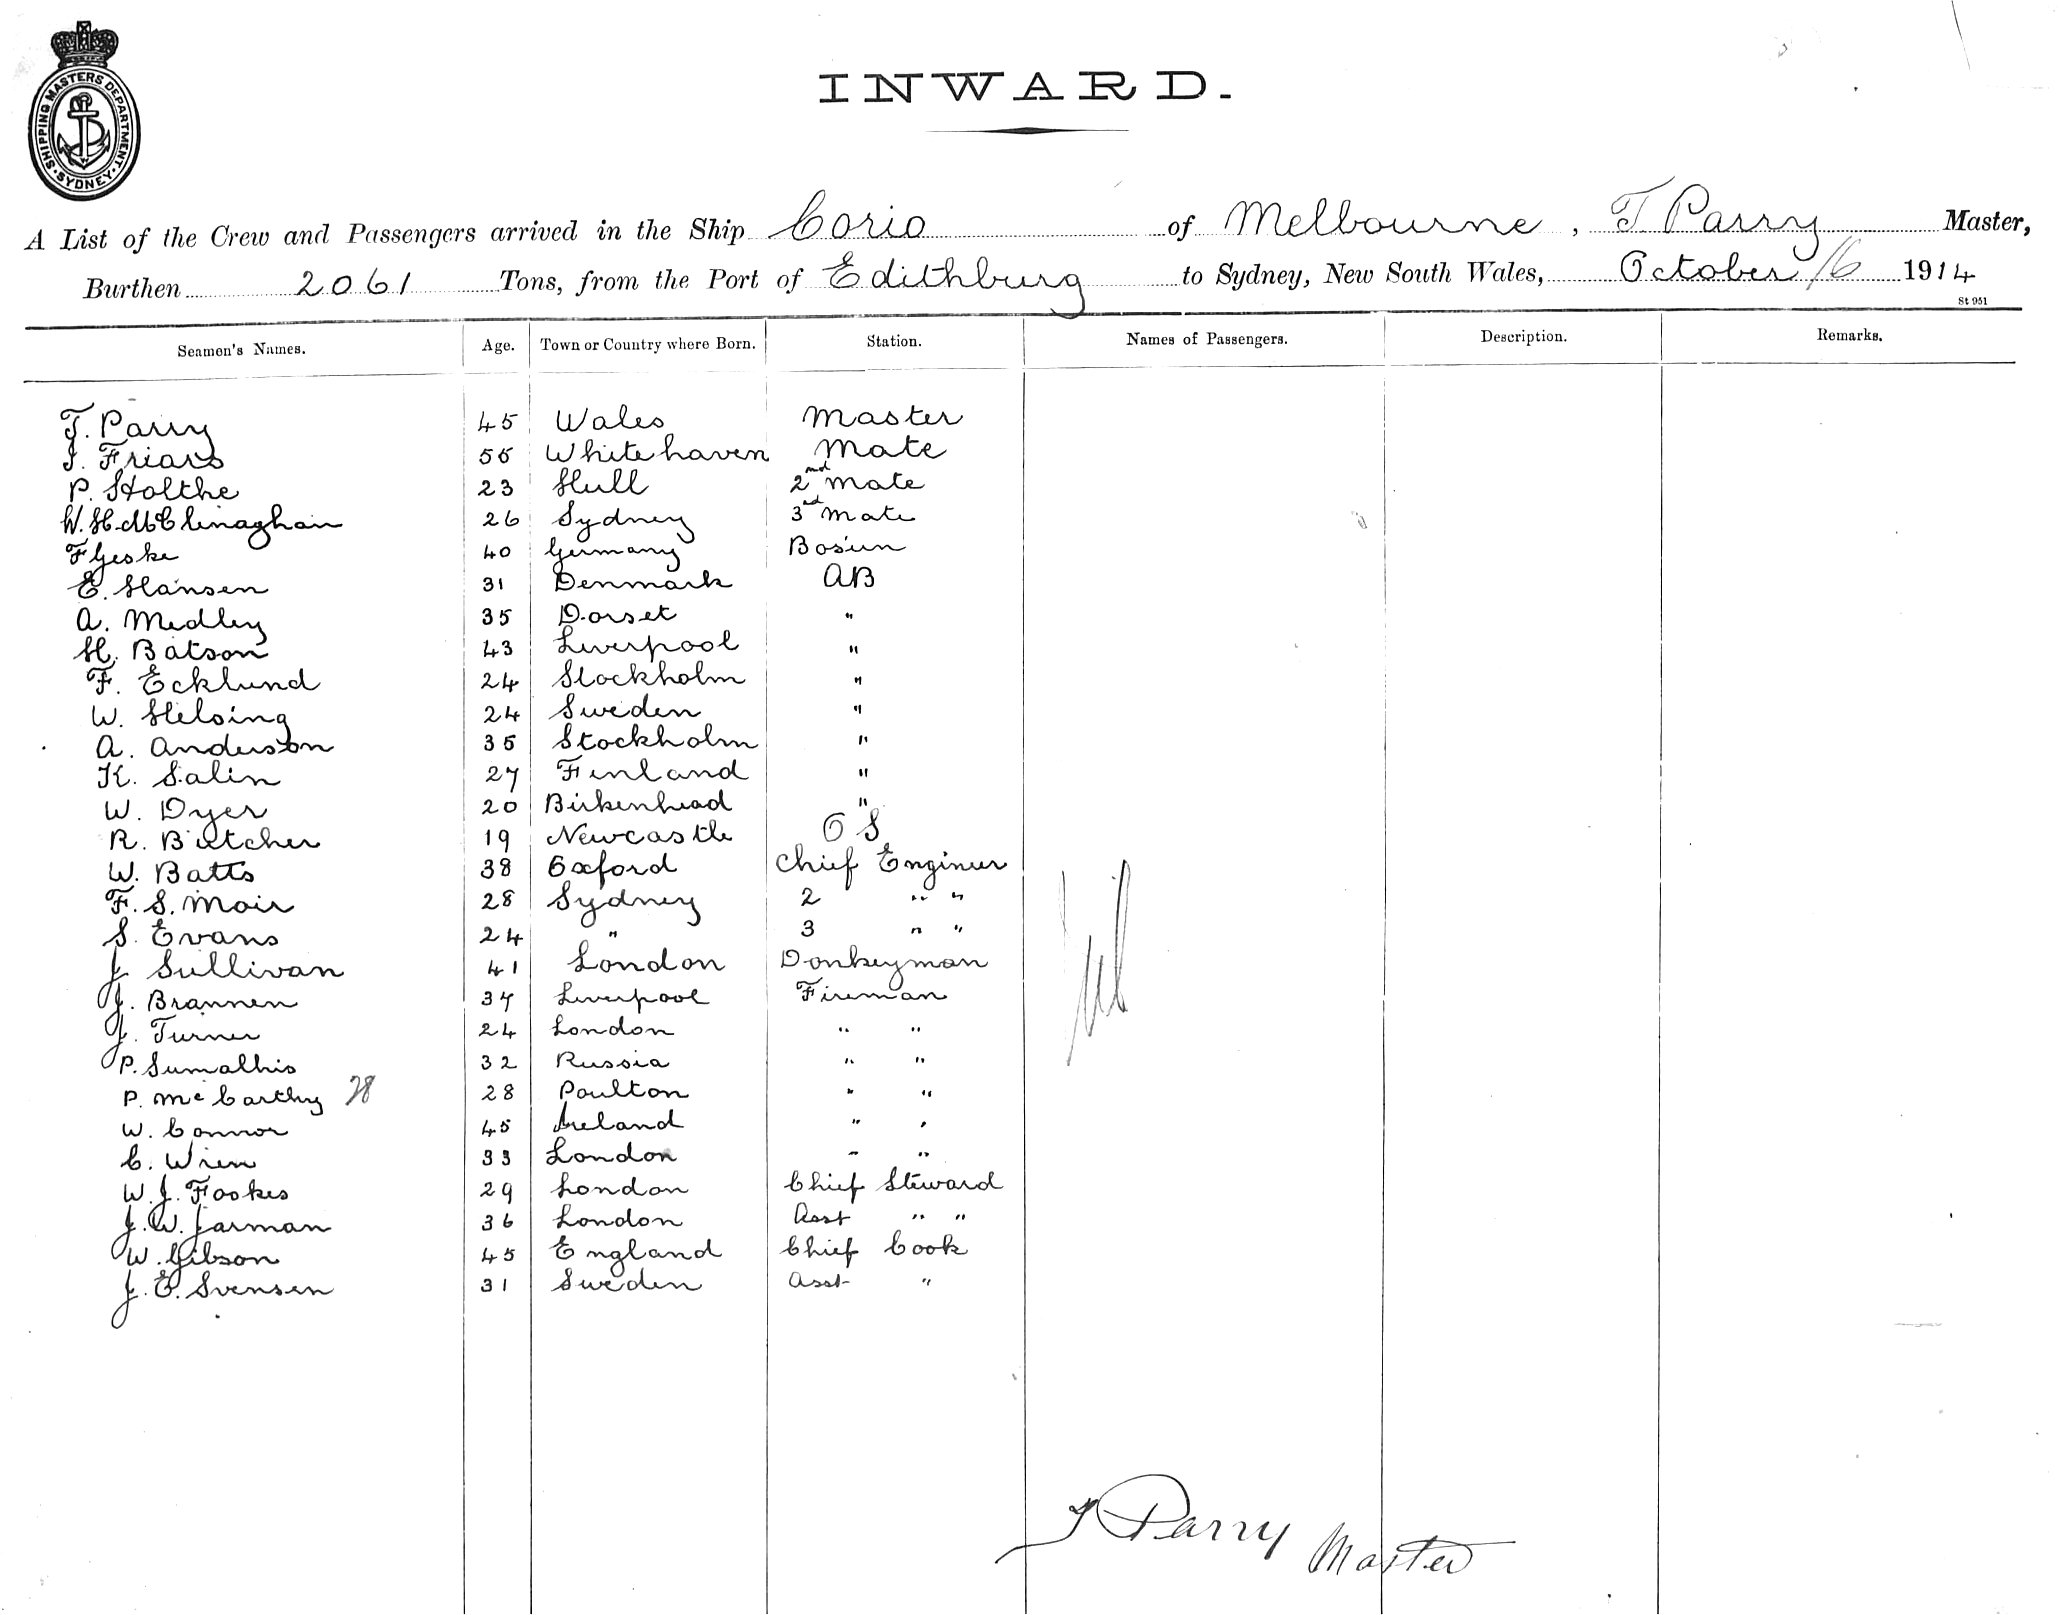 SHIPPING MASTERS DEPARTMENT · SYDNEY ·
INWARD.
A List of the Crew and Passengers arrived in the Ship Corio of Melbourne, T Parry Master,
Burthen 2061 Tons, from the Port of Edithburg to Sydney, New South Wales, October 16 1914
St 951
Seamen's Names. Age. Town or Country where Born. Station. Names of Passengers. Description. Remarks.
T. Parry 45 Wales Master
J. Friars 55 Whitehaven Mate
P. Holthe 23 Hull 2nd Mate
W. H. McClinaghan 26 Sydney 3rd Mate
F Geske 40 Germany Bosun
E. Hansen 31 Denmark AB
A. Medley 35 Dorset "
H. Batson 43 Liverpool "
F. Ecklund 24 Stockholm "
W. Helsing 24 Sweden "
A. Anderson 35 Stockholm "
K. Salin 27 Finland "
W. Dyer 20 Birkenhead "
R. Butcher 19 Newcastle OS
W. Batts 38 Oxford Chief Engineer
F. S. Moir 28 Sydney 2 " "
S. Evans 24 " 3 " "
J. Sullivan 41 London Donkeyman
J. Brannen 37 Liverpool Fireman
J. Turner 24 London " "
P. Sumalhis 32 Russia " "
P. McCarthy 28 28 Poulton " "
W. Connor 45 Ireland " "
C. Wren 33 London " "
W. J. Fookes 29 London Chief Steward
J. W. Jarman 36 London Asst " "
W. Gibson 45 England Chief Cook
J. E. Svensen 31 Sweden Asst "
Nil
T Parry Master